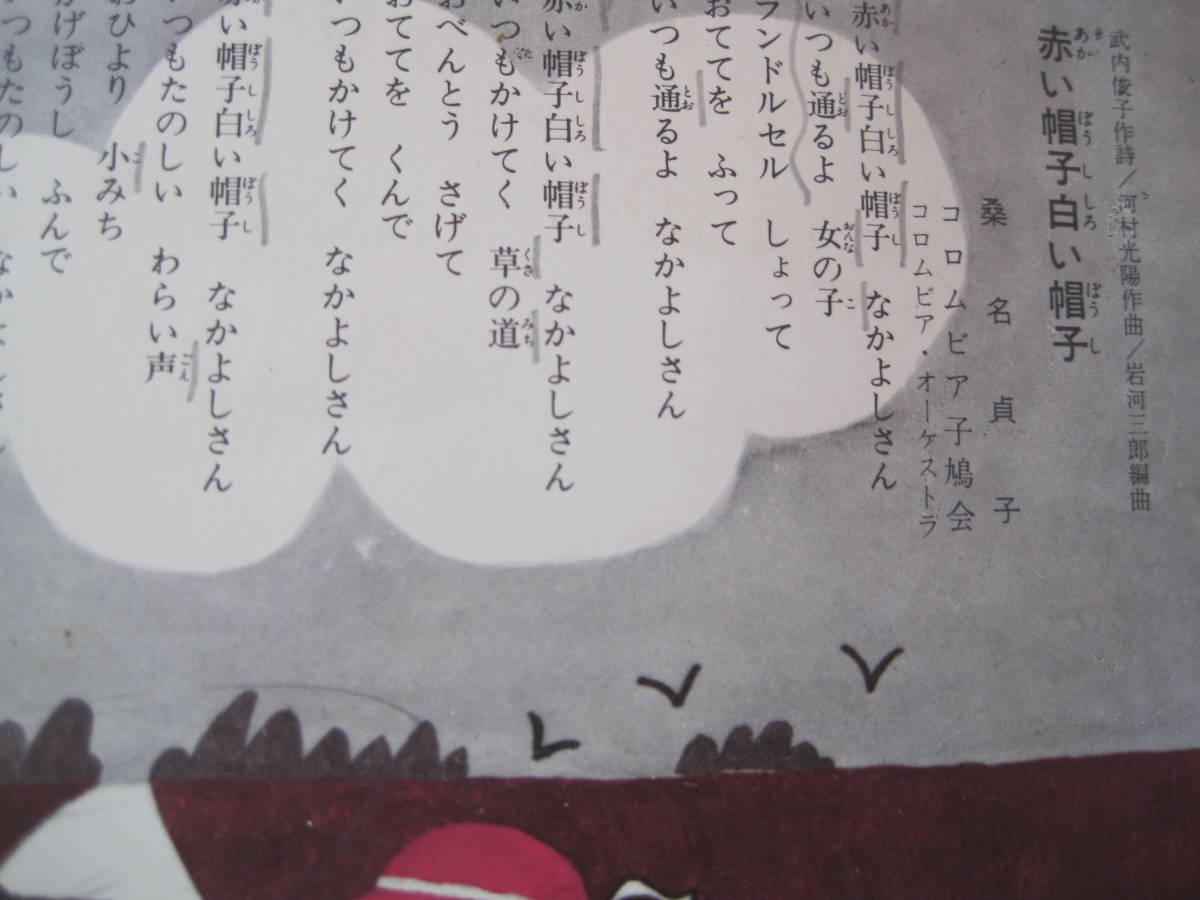 武内俊子作詩/河村光陽作曲/岩河三郎編曲
赤い帽子白い帽子
桑名貞子
コロムビア子鳩会
コロムビア・オーケストラ
赤い帽子白い帽子 なかよしさん
いつも通るよ 女の子
ランドルセル しょって
おててを ふって
いつも通るよ なかよしさん
赤い帽子白い帽子 なかよしさん
いつもかけてく 草の道
おべんとう さげて
おててを くんで
いつもかけてく なかよしさん
赤い帽子白い帽子 なかよしさん
いつもたのしい わらい声
おひより 小みち
かげぼうし ふんで
つもたのしい なかよしさん